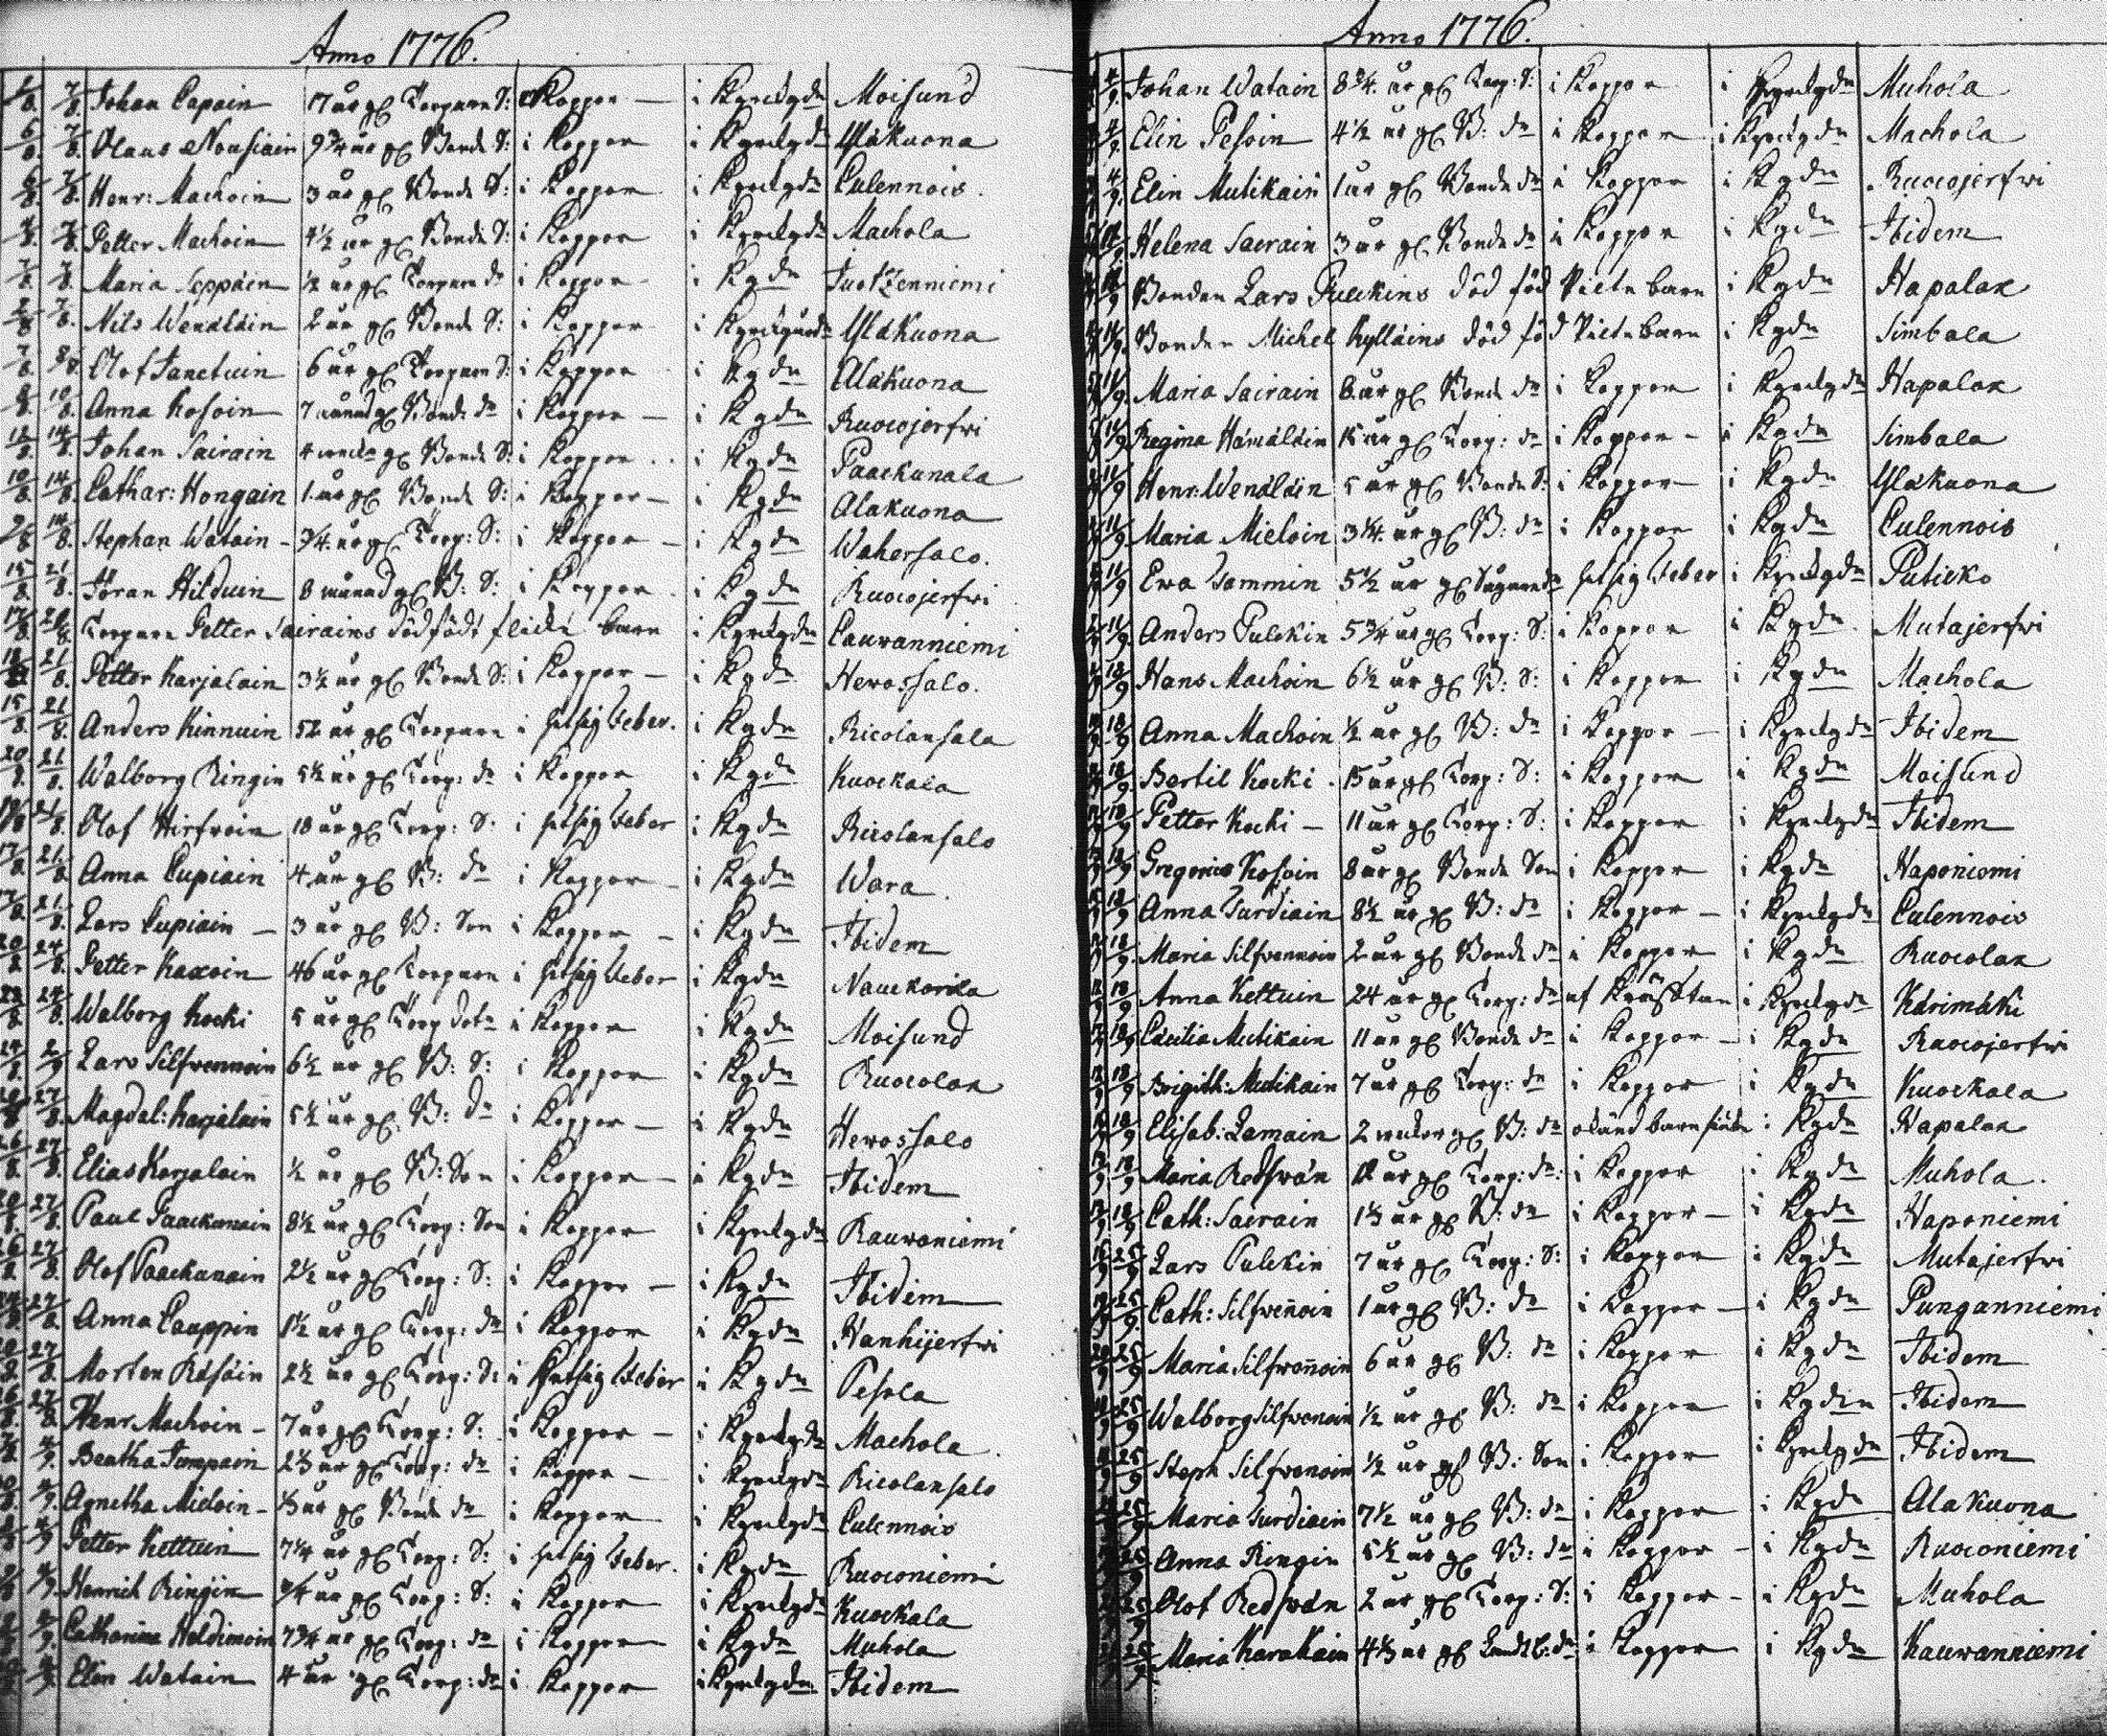 Anno 1776.
7/8. Johan Capain 17 år gl Torparn S: i Koppor i Kyrckgdn Moisund
6/8. 7/8. Olaus Nousiain 9 3/4 år gl Bonde S: i Koppor i Kyrckgdn Yläkuona
6/8. 7/8. Henr: Machoin 3 år gl Bonde S: i Koppor i Kyrckgdn Culennois.
7/8. Petter Machoin 4 1/2 år gl Bonde S: i Koppor i Kyrckgdn Machola
7/8. 7/8. Maria Seppäin 1/2 år gl Torparn dr i Koppor i Kgdn
2/8 7/8. Nils Wenäläin 2 år gl Bonde S: i Koppor i Kyrckgårdn Yläkuona
7/8. 8/8. Olof Tanctuin 6 år gl Torparn S: i Koppor i Kgdn Alakuona
8/8. 10/8. Anna Kosoin 7 månad gl Bonde dr i Koppor i Kgdn Ruocojerfwi
12/8. 14/8. Johan Sairain 4 gl Bonde S: i Koppor i Kgdn Paackunala
10/8. 14/8. Cathar: Hongain 1. år gl Bonde S: i Koppor i Kgdn Alakuona
9/8 14/8. Stephan Watain 3/4. år gl Torp: S: i Koppor i Kgdn Wahersalo.
15/8. 21/8. Jöran Hilduin 8 månad gl B: S: i Koppor i Kgdn Ruocojerfwi
17/8. 20/8. Torparn Petter Sairains dödfödt flicke barn i Kyrckgdn Cauwanniemi
18/8. 21/8. Petter Karjalain 3 1/2 år gl Bonde S: i Koppor i Kgdn Herossalo.
15/8. 21/8. Anders Kinnuin 52 år gl Torparn i hetsig feber. i Kgdn Ricolansala
20/8. 21/8. Walborg Ringin 5 1/2 år gl Torp: dr i Koppor i Kgdn Kuockala
19/8 21/8. Olof Hirfwoin 18 år gl Torp: S: i hetsig feber i Kgdn Ricolansalo
17/8. 21/8. Anna Cupiain 4 år gl B: dr i Koppor i Kgdn Wara
17/8. 21/8. Lars Cupiain 3 år gl B: Son i Koppor i Kgdn Ibidem
20/8. 24/8. Petter Kaxoin 46 år gl Torparn i hetsig feber i Kgdn Nauckarila
23/8. 24/8. Walborg Kocki 5 år gl Torp dotr i Koppor i Kgdn Moisund
24/8. 2/9 Lars Silfwennoin 6 1/2 år gl B: S: i Koppor i Kgdn Ruocolax
27/8. Magdal: Karjalain 5 1/2 år gl B: dr i Koppor i Kgdn Herossalo
26/8. 27/8. Elias Karjalain 1/2 år gl B: Son i Koppor i Kgdn Ibidem
27/8. Paul Paackunain 8 1/2 år gl Torp: Son i Koppor i Kyrckgdn Rauwaniemi
26/8. 27/8. Olof Paackunain 2 1/2 år gl Torp: S: i Koppor i Kgdn Ibidem
27/8. Anna Cauppin 1 1/2 år gl Torp: dr i Koppor i Kgdn Hanhijerfwi
27/8. Morten Räsäin 2 1/2 år gl Torp: S: i hetsig feber i Kgdn Pesola
26/8. 27/8. Henr Machoin 7 år gl Torp: S: i Koppor i Kyrckgdn Machola
4/9. Beatha Tampain 2 1/3 år gl Torp: dr i Koppor i Kyrckgdn Ricolansalo
4/9. Agnetha Mieloin 1/3 år gl Bonde dr i Koppor i Kyrckgdn Culennois
4/9 Petter Kettuin 7 1/4 år gl Torp: S: i hetsig feber. i Kgdn Ruoconiemi
4/9. Henrich Ringin 3/4 år gl Torp: S: i Koppor i Kyrckgdn Kuockala
4/9. Catharina Heldimoin 7 3/4 år gl Torp: dr i Koppor i Kgdn Muhola
4/9. Elin Watain 4 år gl Torp: dr i Koppor i Kyrckgdn Ibidem
Anno 1776.
4/9. Johan Watain 8 3/4. år gl Torp: S: i Koppor i Kyrckgdn Muhola
4/9. Elin Pesoin 4 1/2 år gl B: dr i Koppor i Kyrckgdn Machola
4/9. Elin Mutikain 1 år gl Bonde dr i Koppor i Kgdn Ruocojerfwi
Helena Sairain 3 år gl Bonde dr i Koppor i Kgdn Ibidem
Bonden Lars Pulckins död föd Piltebarn i Kgdn Hapalax
11/9. Bonden Michel Kylläins död föd Piltebarn i Kgdn Simbala
11/9. Maria Sairain 8 år gl Bonde dr i Koppor i Kyrckgdn Hapalax
11/9 Regina Hämäläin 15 år gl Torp: dr i Koppor i Kgdn Simbala
11/9 Henr: Wenäläin 5 år gl Bonde S: i Koppor i Kgdn Yläkuona
11/9. Maria Mieloin 3 1/4. år gl B: dr i Koppor i Kgdn Culennois
11/9 Ewa Tammin 5 1/2 år gl dr hetsig feber i Kyrckgdn Puticko
11/9 Anders Pulckin 5 3/4 år gl Torp: S: i Koppor i Kgdn Mutajerfwi
18/9 Hans Machoin 6 1/2 år gl B: S: i Koppor i Kgdn Machola
18/9 Anna Machoin 1/2 år gl B: dr i Koppor i Kyrckgdn Ibidem
18/9 Bertil Kocki 15 år gl Torp: S: i Koppor i Kgdn Moisund
18/9 Petter Kocki 11 år gl Torp: S: i Koppor i Kyrckgdn Ibidem
18/9 Gregorius Kosoin 8 år gl Bonde Son i Koppor i Kgdn Haponiemi
18/9 Anna Turdiain 8 1/2 år gl B: dr i Koppor i Kyrckgdn Culennois
18/9. Maria Silfwennoin 2 år gl Bonde dr i Koppor i Kgdn Ruocolax
18/9 Anna Kettuin 24 år gl Torp: dr af i Kyrckgdn Kärimäki
18/9 Cäcilia Mutikain 11 år gl Bonde dr i Koppor i Kgdn Ruocojerfwi
18/9 Brigith: Mutikain 7 år gl Torp: dr i Koppor i Kgdn Kuockala
18/9 Elisab: Lamain 2 wekor gl B: dr okänd barnsiuka i Kgdn Hapalax
18/9 Maria Redswän 12 år gl Torp: dr: i Koppor i Kgdn Muhola.
18/9 Cath: Sairain 1 1/3 år gl B: dr i Koppor i Kgdn Haponiemi
25/9 Lars Pulckin 7 år gl Torp: S: i Koppor i Kgdn Mutajerfwi
25/9. Cath: Silfweñoin 1 år gl B: dr i Koppor i Kgdn Punganniemi
25/9 Maria Silfweñoin 6 år gl B: dr i Koppor i Kgdn Ibidem
25/9 Walborg Silfwenoin 1/2 år gl B: dr i Koppor i Kgden Ibidem
25/9 Steph Silfwenoin 1/2 år gl B: Son i Koppor i Kyrckgdn Ibidem
25/9. Maria Turdiain 7 1/2 år gl B: dr i Koppor i Kgdn Alakuona
25/9 Anna Ringin 5 1/2 år gl B: dr i Koppor i Kgdn Ruoconiemi
25/9 Olof Redswän 2 år gl Torp: S: i Koppor i Kgdn Muhola
25/9. Maria Karakain 4 1/3 år gl dr i Koppor i Kgdn Kauwanniemi